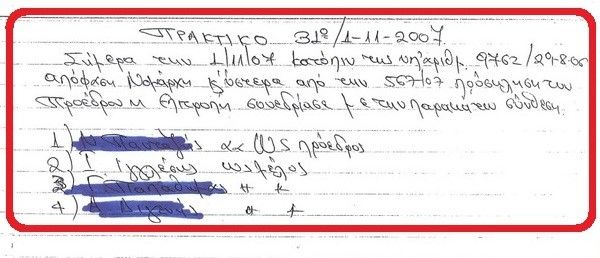 ΠΡΑΚΤΙΚΟ 31º/1-11-2007
Σήμερα την 1/11/07 κατόπιν της υπ'αριθμ. 9762/29-8-06
απόφαση Νομάρχη & ύστερα από την 567/07 πρόσκληση του
Προέδρου η Επιτροπή συνεδρίασε με την παρακάτω σύνθεση.
1) ως πρόεδρος
2) Γ ως μέλος
3) " "
4) " "